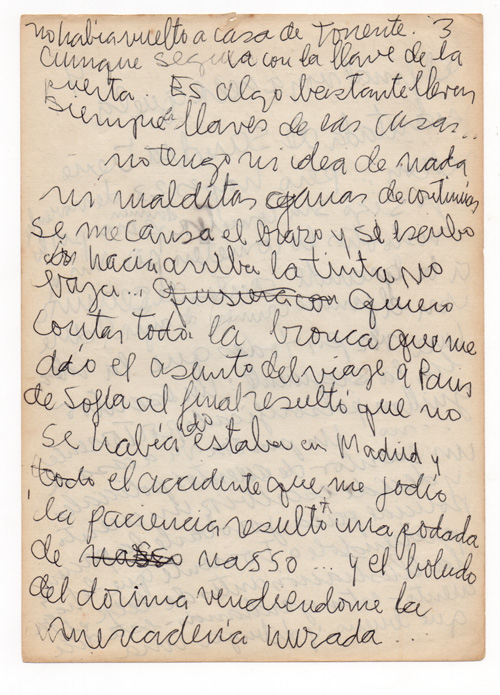 no había vuelto a casa de Torrente. 3
aunque seguía con la llave de la
puerta. Es algo bastante llevar
siempre la llaves de las casas..
no tengo ni idea de nada
ni malditas ganas de continuar
se me cansa el brazo y si escribo
hacia arriba la tinta no
baja... quisiera con quiero
contar todo la bronca que me
dio el asunto del viaje a Paris
de Sofia al final resultó que no
se había ido estaba en Madrid y
todo el accidente que me jodio
la paciencia resultó una
de nasso nasso ... y el boludo
del dorima vendiendome la
mercaderia murada ...